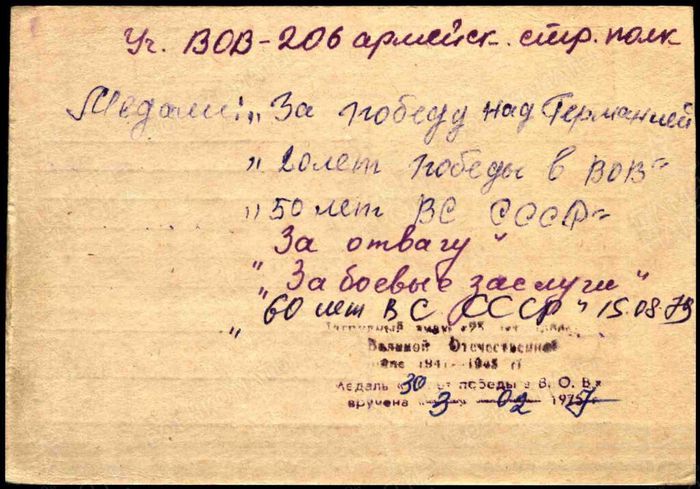 Уч. ВОВ-206 армейск. стр. полк
Медали: „За победу над Германией
„20 лет победы в ВОВ"
„50 лет ВС СССР"
За отвагу"
„За боевые заслуги"
„60 лет ВС СССР" 15.08.79
Нагрудный знак «25 лет
Великой Отечественной
1941-1945 гг
Медаль «30 лет победы в В. О. В.»
вручена «3» 02 1977